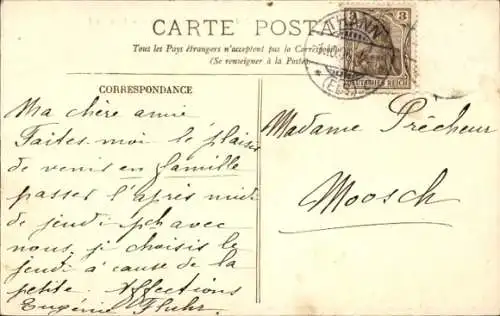 CARTE POSTALE
Tous les Pays étrangers n'acceptent pas la Correspondance
(Se renseigner à la Poste)
THANN
3
DEUTSCHES REICH
CORRESPONDANCE
Ma chère amie
Faites-moi le plaisir
de venir en famille
passer l'après midi
de jeudi pch avec
nous, je choisis le
jeudi à cause de la
petite. Affections
Eugénie Fluhr
Madame Prêcheur
Moosch